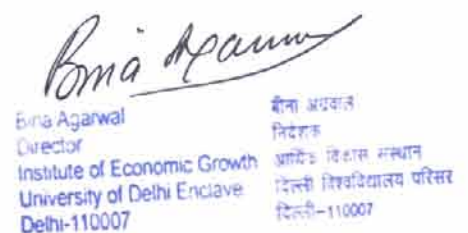 Bina Agarwal
Bina Agarwal
Director
Institute of Economic Growth
University of Delhi Enclave
Delhi-110007
बीना अग्रवाल
निदेशक
आर्थिक विकास संस्थान
दिल्ली विश्वविद्यालय परिसर
दिल्ली-110007